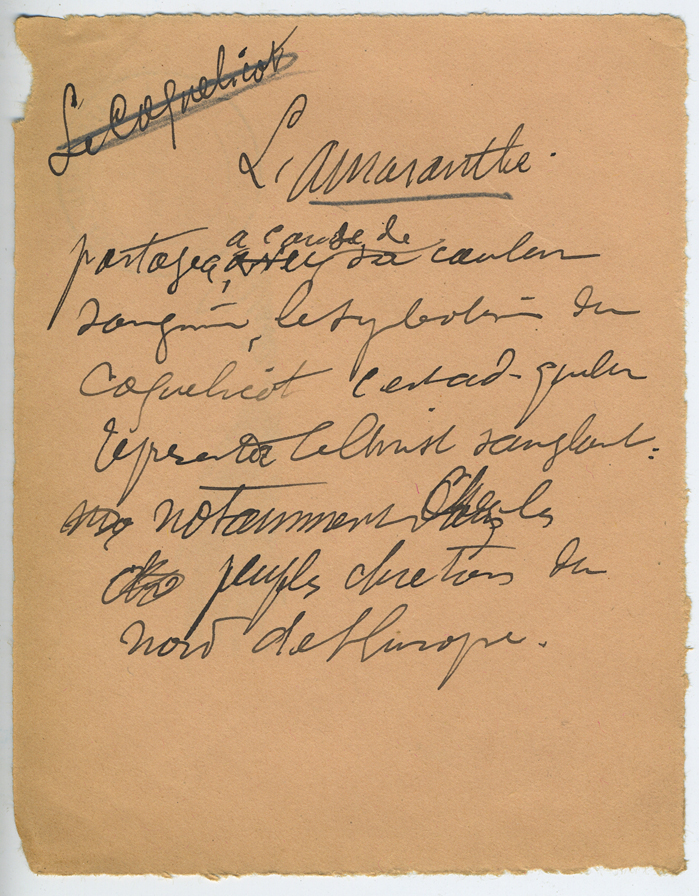 Le Coquelicot
L'amaranthe.
a cause de
partage, avec sa couleur
sanguine, le symbolisme du
Coquelicot c'est-à-d-qu'elle
représenta le Christ sanglant.
notamment chez les
peuples chretiens du
nord de l'Europe.